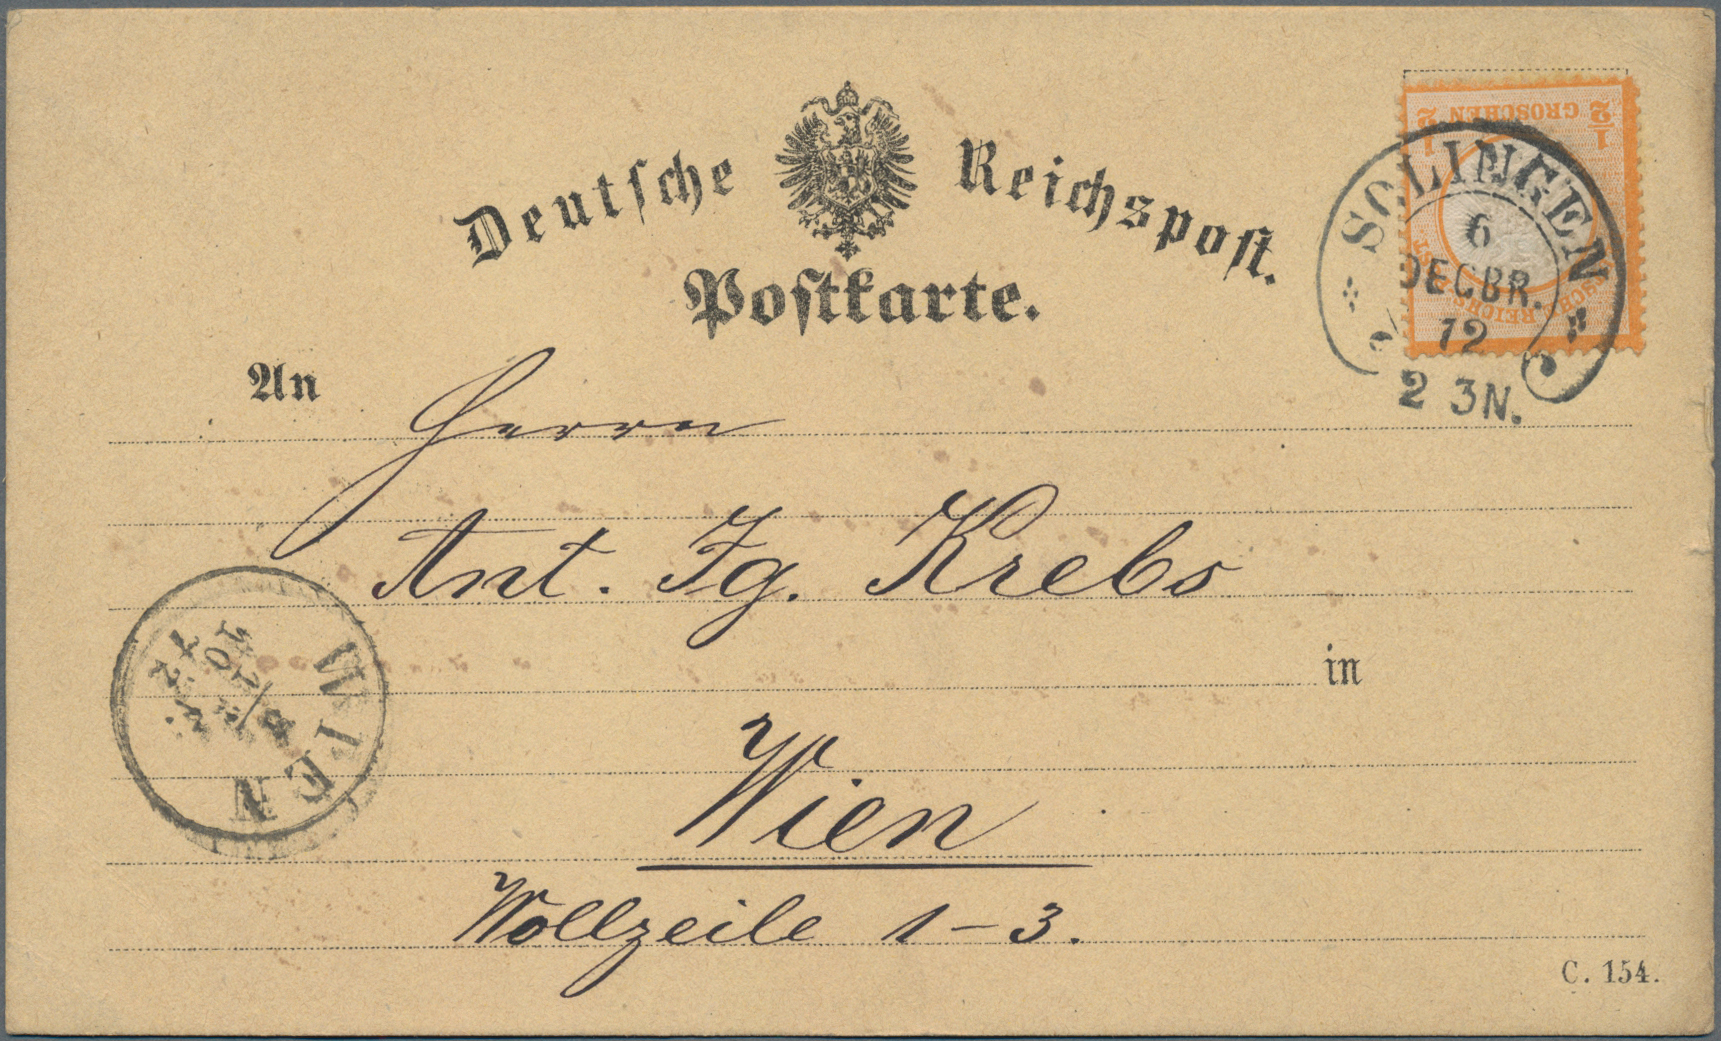 Deutsche Reichspost.
Postkarte.
½ GROSCHEN ½
SOLINGEN
6
DECBR.
72
2 3N.
An
Herrn
Ant. Jg. Krebs
in
Wien
Wollzeile 1-3.
WIEN
72
C. 154.